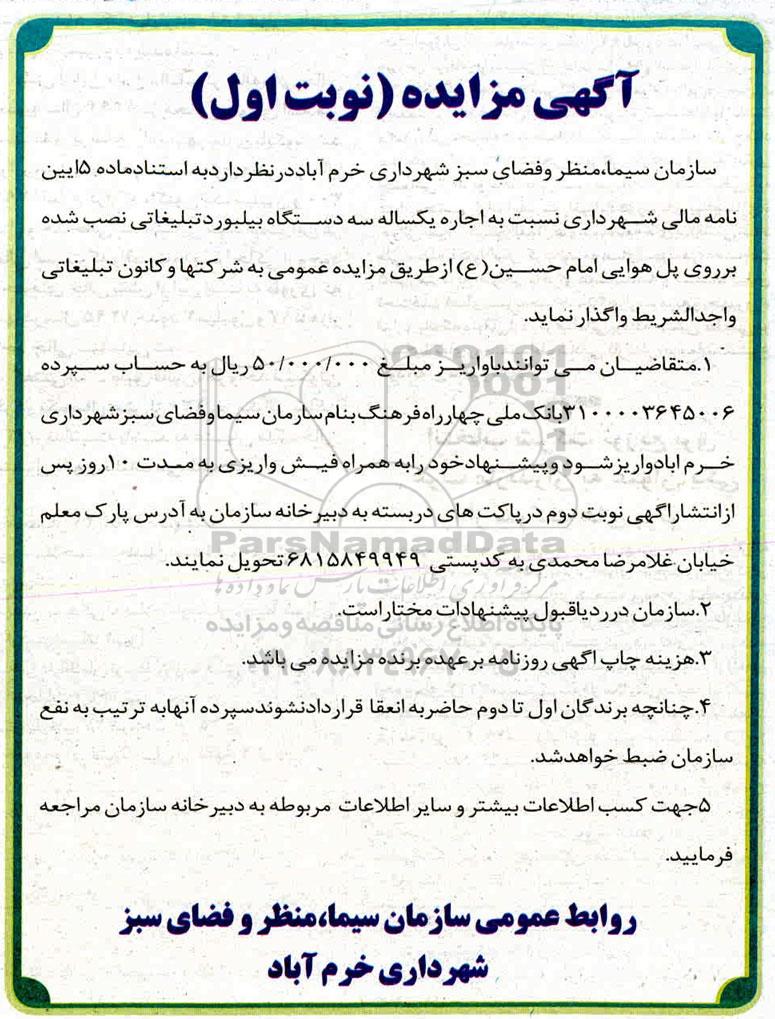 آگهی مزایده (نوبت اول)
سازمان سیما،منظر وفضای سبز شهرداری خرم آباددرنظرداردبه استنادماده ۵ایین
نامه مالی شهرداری نسبت به اجاره یکساله سه دستگاه بیلبوردتبلیغاتی نصب شده
برروی پل هوایی امام حسین(ع) ازطریق مزایده عمومی به شرکتها وکانون تبلیغاتی
واجدالشریط واگذار نماید.
۱.متقاضیان می توانندباواریز مبلغ ۵۰/۰۰۰/۰۰۰ ریال به حساب سپرده
۳۱۰۰۰۰۳۶۴۵۰۰۶بانک ملی چهارراه فرهنگ بنام سازمان سیما وفضای سبزشهرداری
خرم ابادواریزشود وپیشنهادخود رابه همراه فیش واریزی به مدت ۱۰روز پس
ازانتشاراگهی نوبت دوم درپاکت های دربسته به دبیرخانه سازمان به آدرس پارک معلم
خیابان غلامرضا محمدی به کدپستی ۶۸۱۵۸۴۹۹۴۹ تحویل نمایند.
ParsNamadData
مرکز فرآوری اطلاعات پارس نماد داده ها
۲.سازمان درردیاقبول پیشنهادات مختاراست.
پایگاه اطلاع رسانی مناقصه ومزایده
۳.هزینه چاپ اگهی روزنامه برعهده برنده مزایده می باشد.
۰۲۱-۸۸۳۴۹۶۷۰-۵
۴.چنانچه برندگان اول تا دوم حاضربه انعقا قراردادنشوندسپرده آنهابه ترتیب به نفع
سازمان ضبط خواهدشد.
۵جهت کسب اطلاعات بیشتر و سایر اطلاعات مربوطه به دبیرخانه سازمان مراجعه
فرمایید.
روابط عمومی سازمان سیما،منظر و فضای سبز
شهرداری خرم آباد